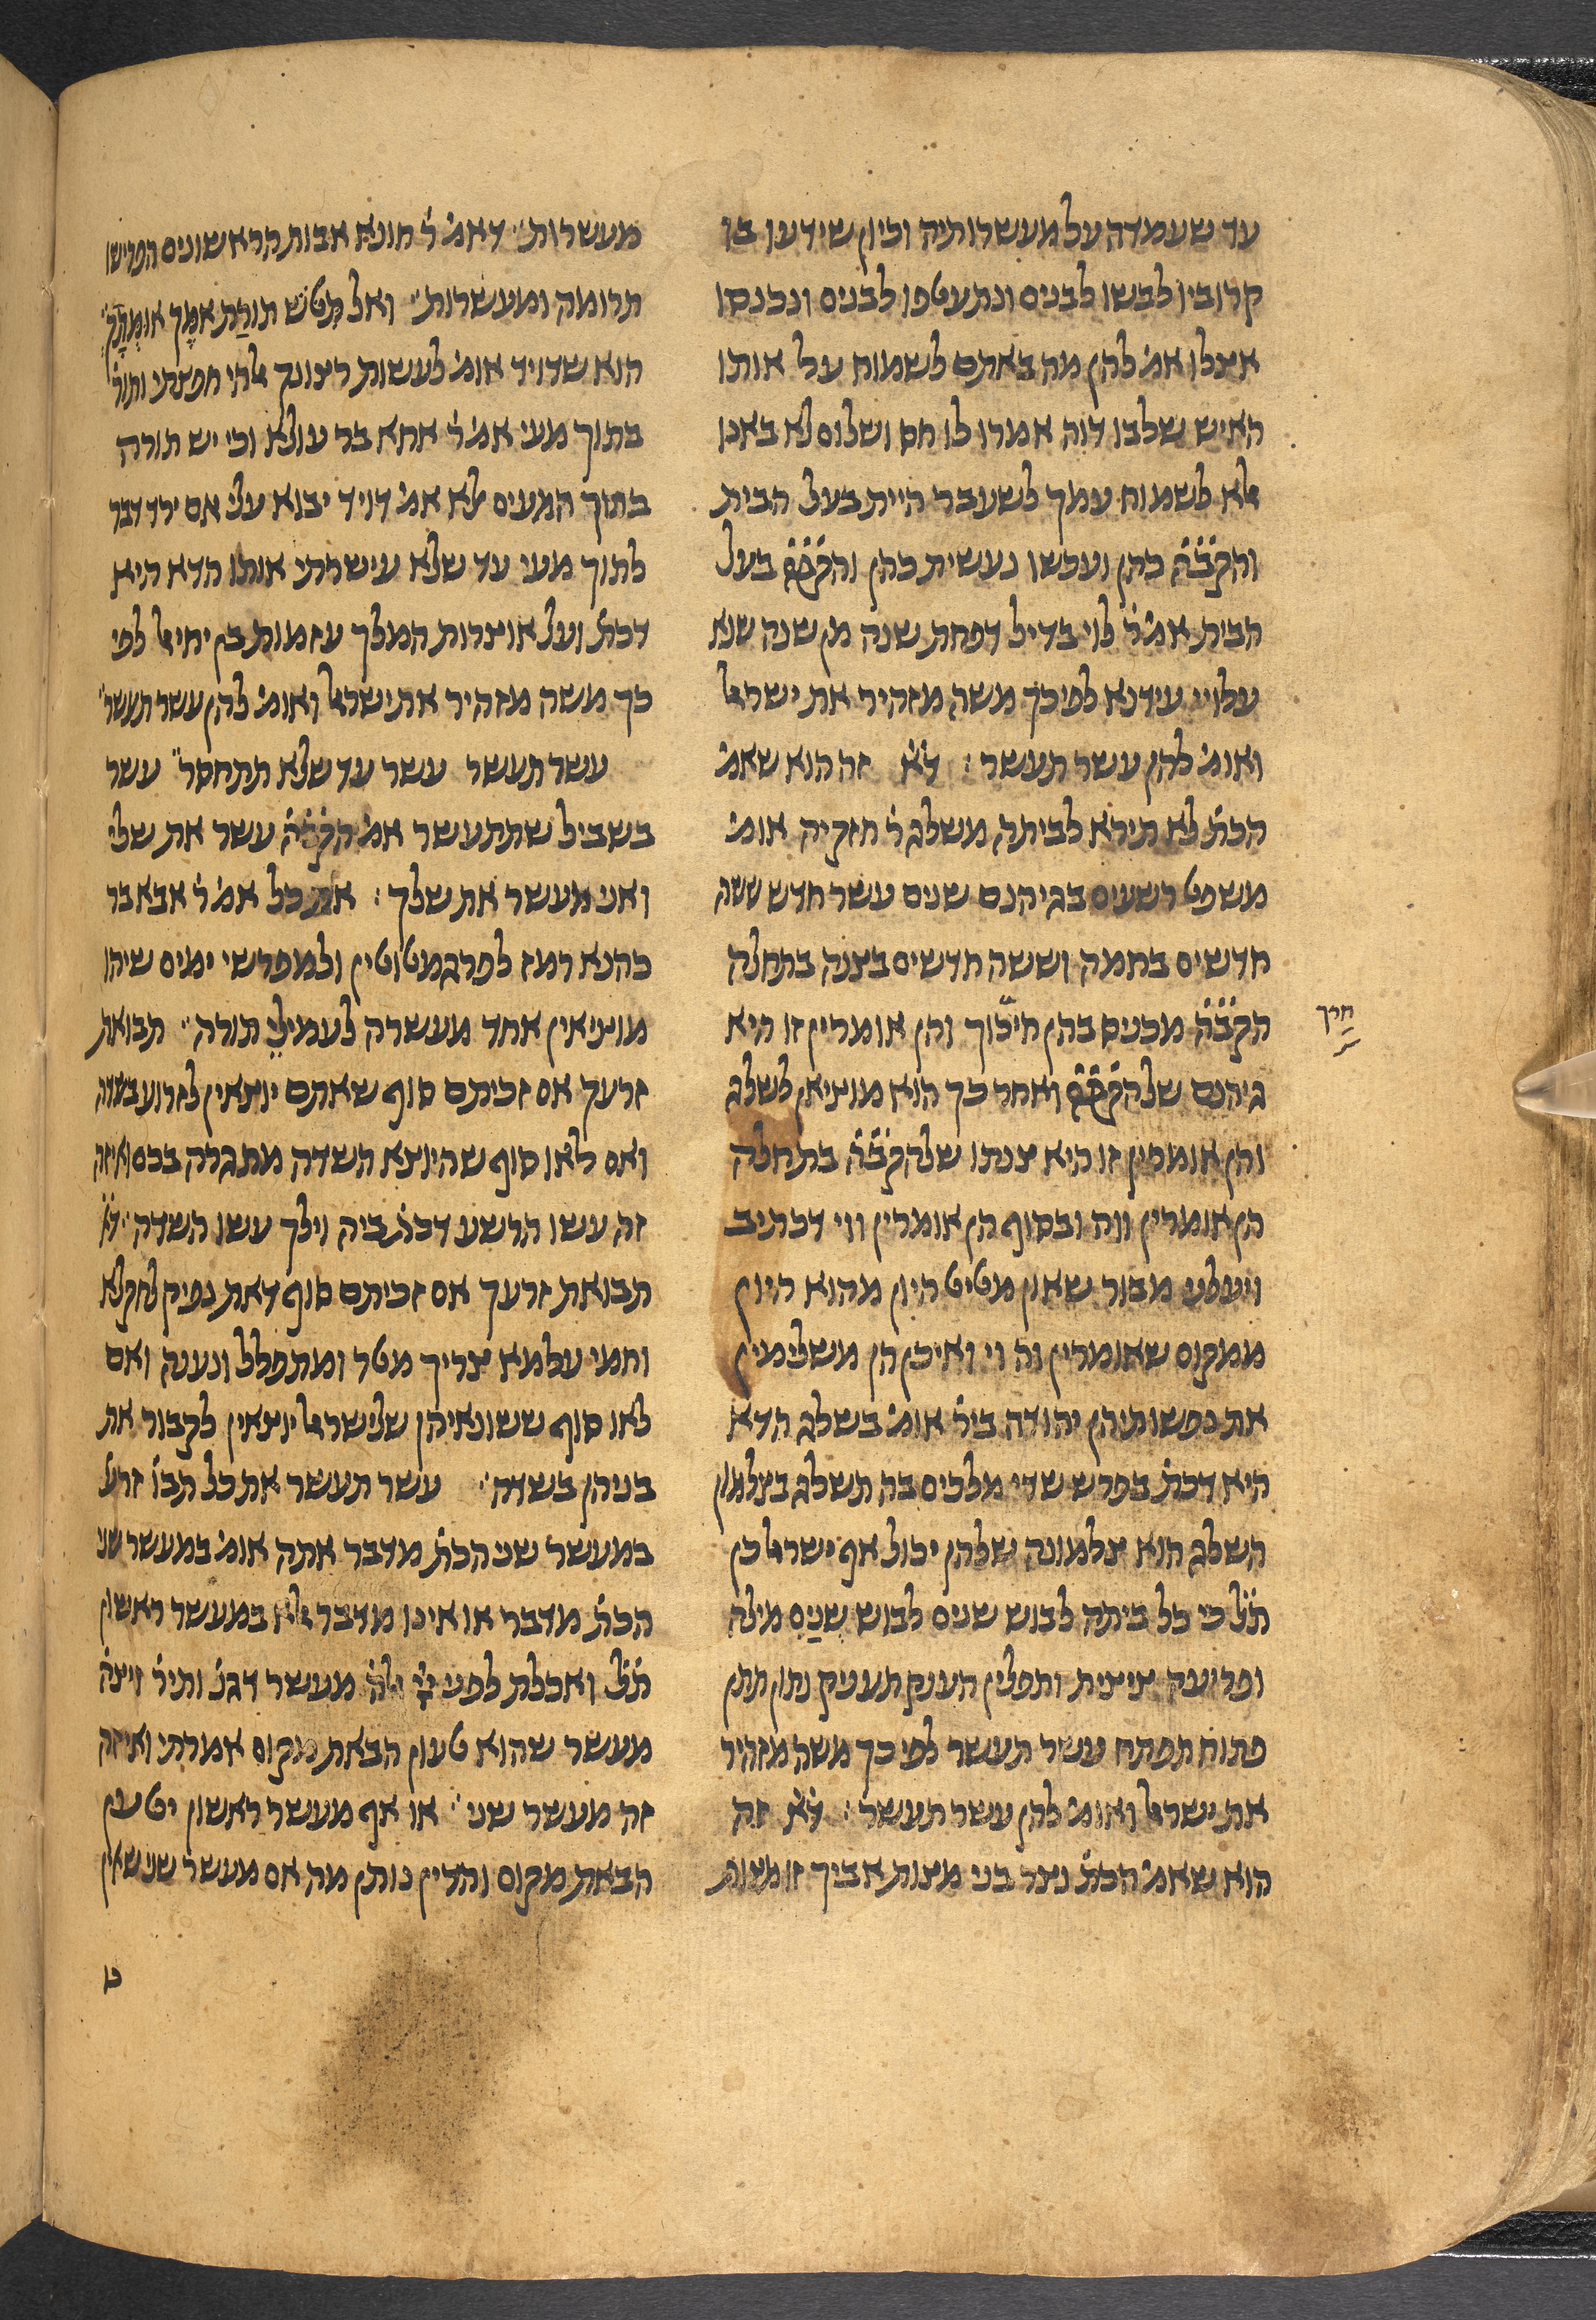 עד שעמדה על מעשרותיה וכיון שידעו בו
קרוביו לבשו לבנים ונתעטפו לבנים ונכנסו
אצלו אמ׳ להן מה באתם לשמוח על אותו
האיש שלבו דוה אמרו לו חס ושלום לא באנו
אלא לשמוח עמך לשעבר היית בעל הבית
והקב״ה כהן ועכשו נעשית כהן והקב״ה בעל
הבית אמ׳ ר׳ לוי בדיל דפחת שנה מן שנה שנא
עלויי עידנא לפיכך משה מזהיר את ישראל
ואומ׳ להן עשר תעשר : ד״א זה הוא שאמ׳
הכת׳ לא תירא לביתה משלג ר׳ חזקיה אומ׳
משפט רשעים בגיהנם שנים עשר חדש ששה
חדשים בחמה וששה חדשים בצנה בתחלה
הקב״ה מכניסם בהן חיכוך והן אומרין זו היא
גיהנם שלהקב״ה ואחר כך הוא מוציאן לשלג
והן אומרין זו היא צנתו שלהקב״ה בתחלה
הן אומרין ווה ובסוף הן אומרין ווי דכתיב
ויעלני מבור שאון מטיט היון מהוא היון
ממקום שאומרין וה וי ואיכן הן משלימין
את נפשותיהן יהודה ביר׳ אומ׳ בשלג הדא
היא דכת׳ בפרש שדי מלכים בה תשלג בצלמון
השלג הוא צלמונה שלהן יכול אף ישראל כן
ת״ל כי כל ביתה לבוש שנים לבוש שְנַיִם מילה
ופריעה ציצית ותפלין הענק תעניק נתן תתן
פתוח תפתח עשר תעשר לפיכך משה מזהיר
את ישראל ואומ׳ להן עשר תעשר : ד״א זה
הוא שאמ׳ הכת׳ נצר בני מצות אביך זו מצות
חרך
מעשרות׳ דאמ׳ ר׳ חונא אבות הראשונים הפרישו
תרומה ומעשרות׳ ואל תִטֹש תורַת אִמֶך אוּמָתָךְ
הוא שדויד אומ׳ לעשות רצונך אלהי חפצתי ותור׳
בתוך מעי אמ׳ ר׳ אחא בר עולא וכי יש תורה
בתוך המעים אלא אמ׳ דויד יבוא עלי אם ירד דבר
לתוך מעי עד שלא עישרתי אותו הדא היא
דכת׳ ועל אוצרות המלך עזמות בן יחיאל לפי
כך משה מזהיר את ישראל ואומ׳ להן עשר תעשר׳
עשר תעשר עשר עד שלא תתחסר׳ עשר
בשביל שתתעשר אמ׳ הקב״ה עשר את שלי
ואני מעשר את שלך : את כל אמ׳ ר׳ אבא בר
כהנא רמז לפרגמטוטין ולמפרשי ימים שיהו
מוציאין אחד מעשרה לעמילֵי תורה׳ תבואת
זרעך אם זכיתם סוף שאתם יוצאין לזרוע בשדה
ואם לאו סוף שהיוצא השדה מתגרה בכם ואיזה
זה עשו הרשע דכת׳ ביה וילך עשו השדה׳ ד״א
תבואת זרעך אם זכיתם סוף דאת נפיק לחקלא
וחמי עלמא צריך מטר ומתפלל ונענה ואם
לאו סוף ששונאיהן שלישראל יוצאין לקבור את
בניהן בשדה׳ עשר תעשר את כל תבו׳ זרע׳
במעשר שני הכת׳ מדבר אתה אומ׳ במעשר שני
הכת׳ מדבר או אינו מדבר אלא במעשר ראשון
ת״ל ואכלת לפני ייי אלה׳ מעשר דגנ׳ ותיר׳ ויצה׳
מעשר שהוא טעון הבאת מקום אמרתי ואיזה
זה מעשר שני׳ או אף מעשר ראשון יטעון
הבאת מקום והדין נותן מה אם מעשר שני שאין